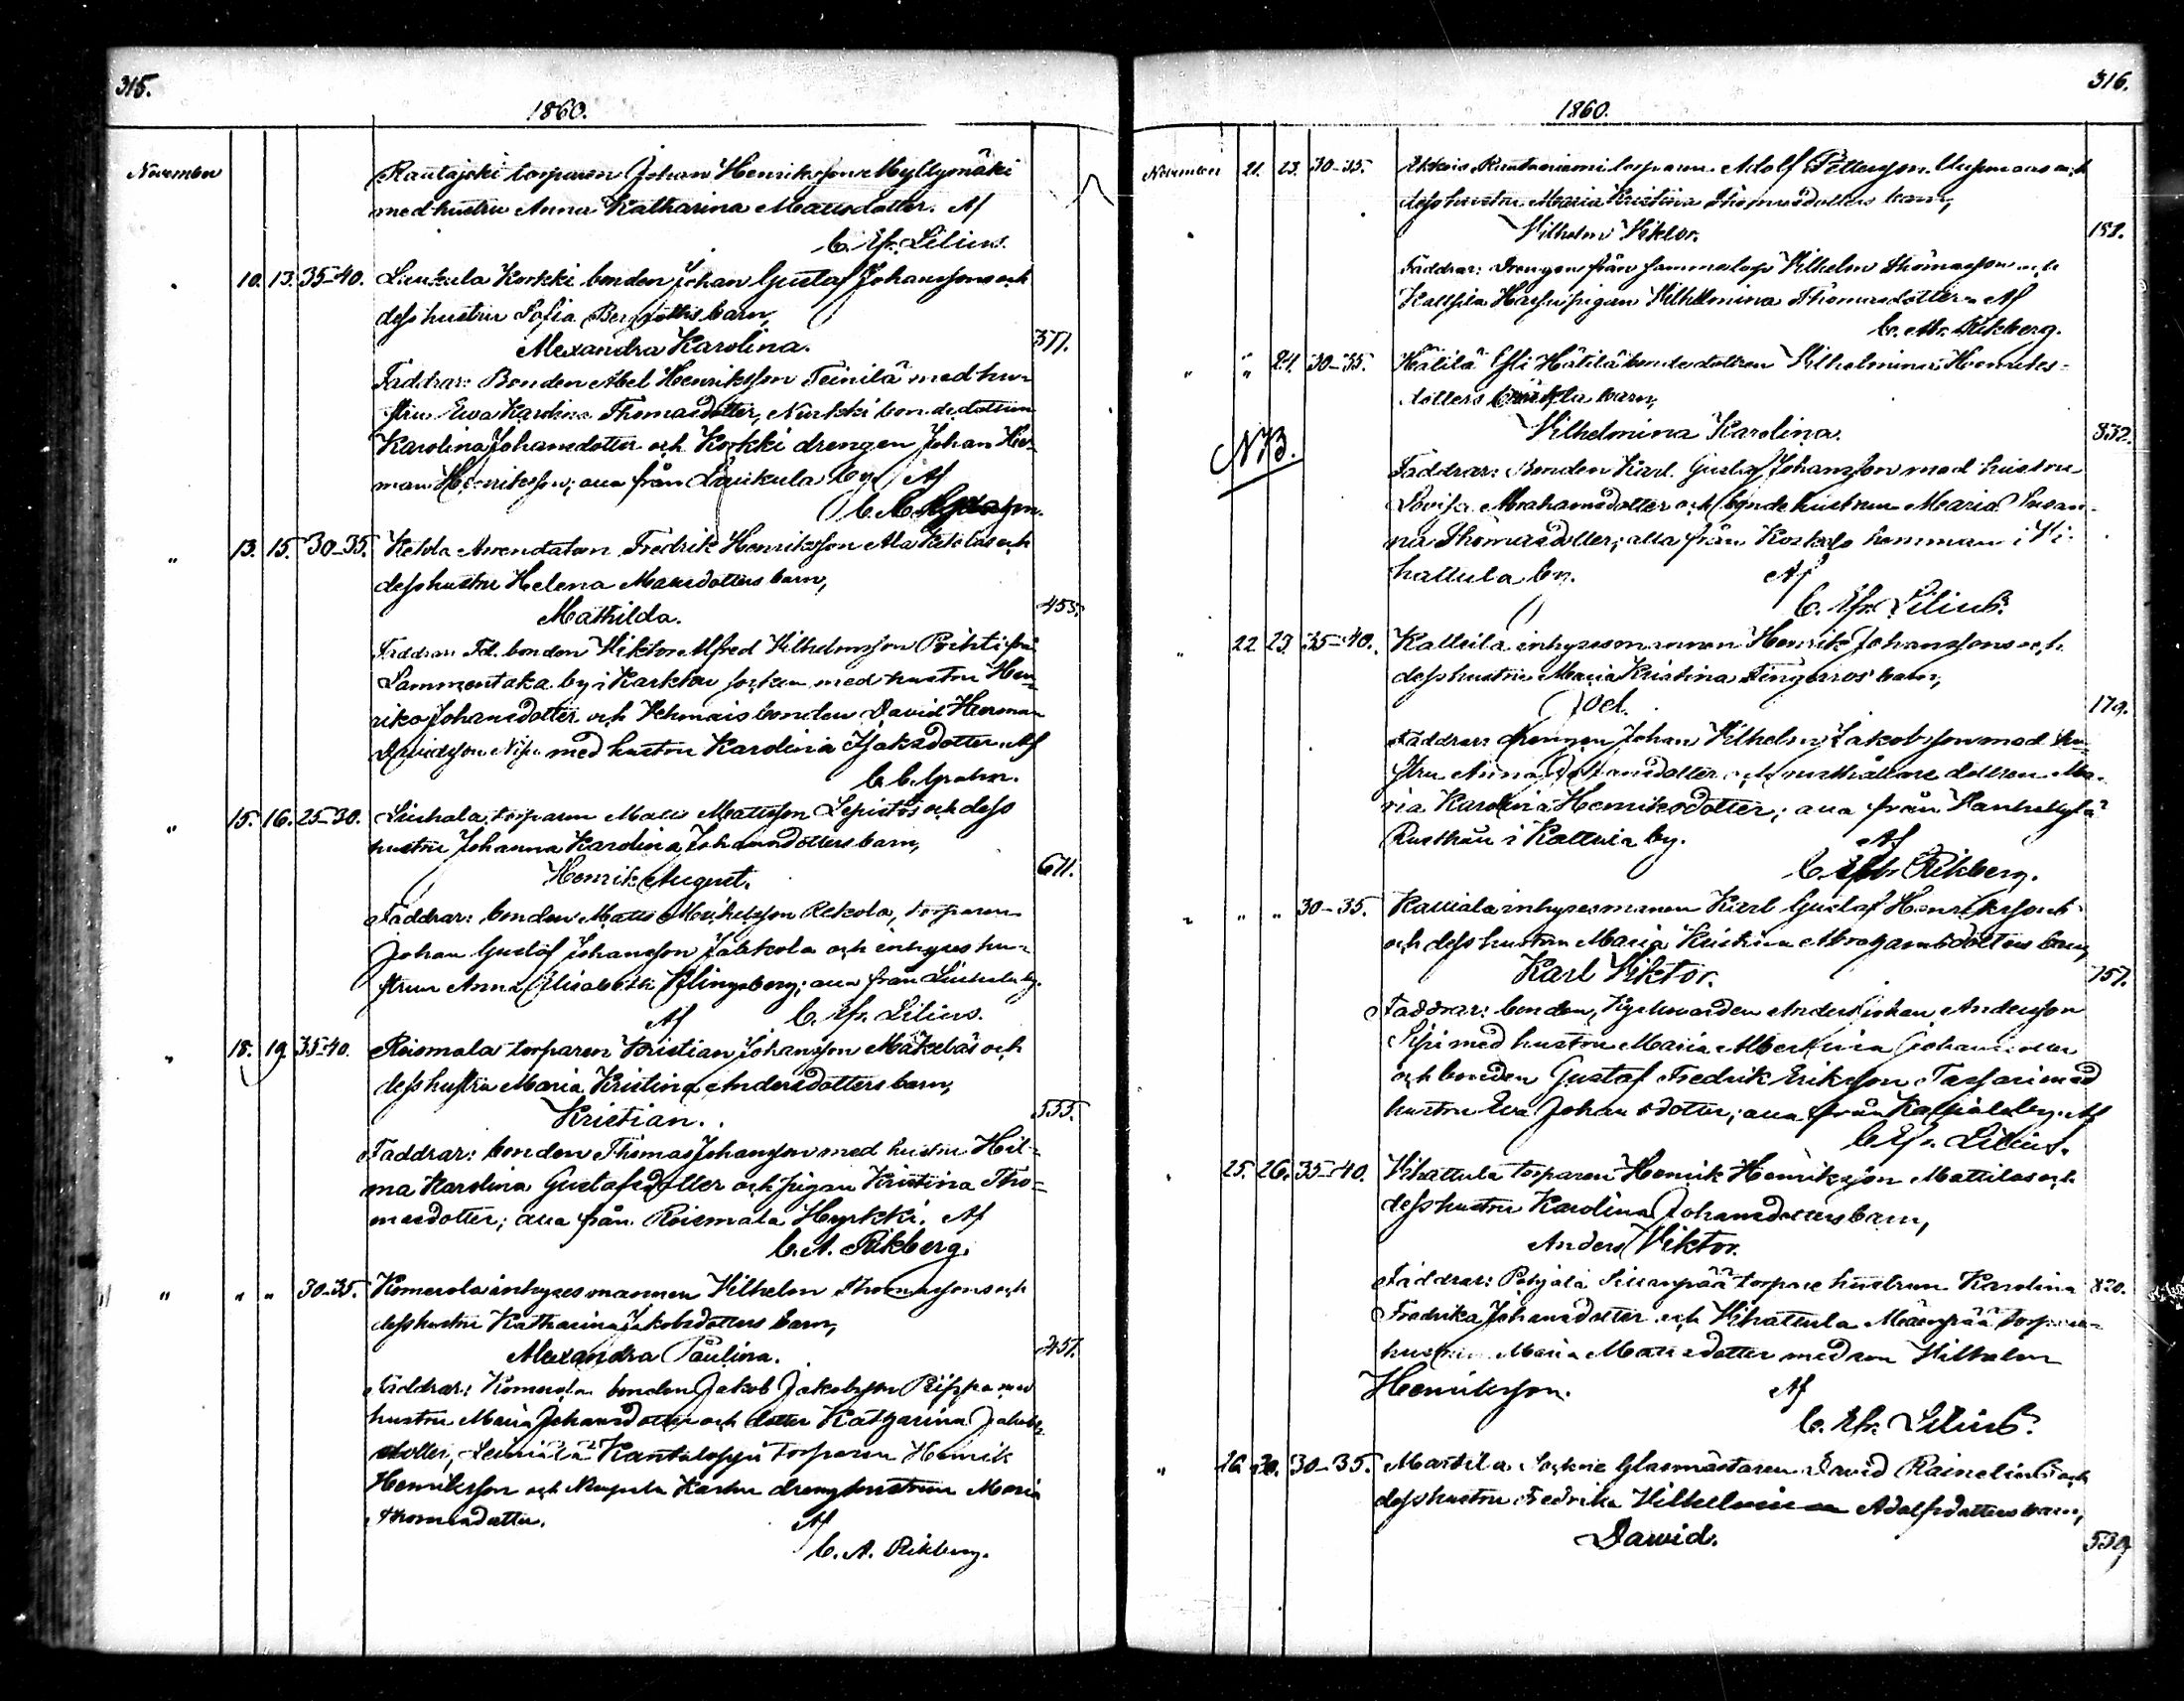 315.
1860.
November
Rautajoki torparen Johan Henriksson Myllymäki
med hustru Anna Katharina Mattsdotter. Af
C. Efr. Lilius.
10. 13. 35-40. Laukula Korkki bonden Johan Gustaf Johanssons och
dess hustru Sofia barn,
Alexandra Karolina. 377.
Faddrar: Bonden Abel Henriksson Teinilä med hu-
stru Ewa Karolina Thomasdotter, Nurkki bondedottren
Karolina Johansdotter och Korkki drengen Johan Her-
man Henriksson; alla från Laukula by. Af
" 13. 15. 30-35. Ketola Arrendatorn Fredrik Henriksson Ala Ketolas och
dess hustru Helena Mattsdotters barn,
Mathilda. 455.
Faddrar: Fd. bonden Viktor Alfred Vilhelmsson Prihti från
Lammentaka by i Karkku socken med hustru Hen-
rika Johansdotter och bonden David Herman
Davidsson med hustru Karolina Isaksdotter. Af
C. C. Grahn.
" 15. 16. 25-30. Liuhala torparen Matts Mattsson Lepistös och dess
hustru Johanna Karolina Johansdotters barn,
Henrik August. 671.
Faddrar: bonden Matts Michelsson Rekola, torparen
Johan Gustaf Johansson Jaakola och inhyses hu-
strun Anna Elisabeth Klingsberg; alla från Liuhala by.
Af C. Efr. Lilius.
" 18. 19. 35-40. Roismala torparen Kristian Johansson Mäkeläs och
dess hustru Maria Kristina Andersdotters barn,
Kristian. 555.
Faddrar: bonden Thomas Johansson med hustru Hil-
ma Karolina Gustafsdotter och pigan Kristina Tho-
masdotter; alla från Roismala Hyrkki. Af
C. A. Rikberg.
" " " 30-35. Komerola inhysesmannen Vilhelm Thomassons och
dess hustru Katharina Jakobsdotters barn,
Alexandra Paulina. 457.
Faddrar: Komerola bonden Jakob Jakobsson Prippa med
hustru Maria Johansdotter och dotter Katharina Jakobs-
dotter, torparen Henrik
Henriksson och drenghustrun Maria
Thomasdotter. Af
C. A. Rikberg.
316.
1860.
November 21. 23. 30-35. torparen Adolf Pettersson och
dess hustru Maria Kristina Thomasdotters barn,
Vilhelm Viktor. 151.
Faddrar: Drengen från samma torp Vilhelm Thomasson och
pigan Vilhelmina Thomasdotter. Af
C. Rikberg.
" " 24. 30-35. Hätilä bondedottren Vilhelmina Henriks-
dotters oäkta barn,
Vilhelmina Karolina. 832.
NB.
Faddrar: Bonden Karl Gustaf Johansson med hustru
Lovisa Abrahamsdotter och bondehustrun Maria Susan-
na Thomasdotter; alla från hemman i Vi-
hattula by. Af
C. Efr. Lilius.
" 22. 23. 35-40. Kallila inhysesmannen Henrik Johanssons och
dess hustru Maria Kristina Tingerros' barn,
Joel. 179.
Faddrar: drengen Johan Vilhelm Jakobsson med hu-
stru Anna dotter och rusthållare dottren Ma-
ria Karolina Henriksdotter; alla från
Rusthåll i by. Af
C. Rikberg.
" " " 30-35. inhysesmannen Karl Gustaf Henrikssons
och dess hustru Maria Kristina Abrahamsdotters barn,
Karl Viktor. 757.
Faddrar: bonden, Kyrkvärden Anders Johan Andersson
Sipi med hustru Maria Albertina Johansdotter
och bonden Gustaf Fredrik Eriksson med
hustru Eva Johansdotter; alla från by. Af
C. Efr. Lilius.
25. 26. 35-40. Vihattula torparen Henrik Henriksson Mattilas och
dess hustru Karolina Johansdotters barn,
Anders Viktor.
Faddrar: Pohjala torpare hustrun Karolina 820.
Fredrika Johansdotter och Vihattula Mäenpää torpare-
hustrun Maria Mattsdotter med son Vilhelm
Henriksson. Af
C. Efr. Lilius.
" 26. 30. 30-35. Marttila Sockne Glasmästaren David Rainelius och
dess hustru Fredrika Vilhelmina Adolfsdotters barn,
Dawid. 539.